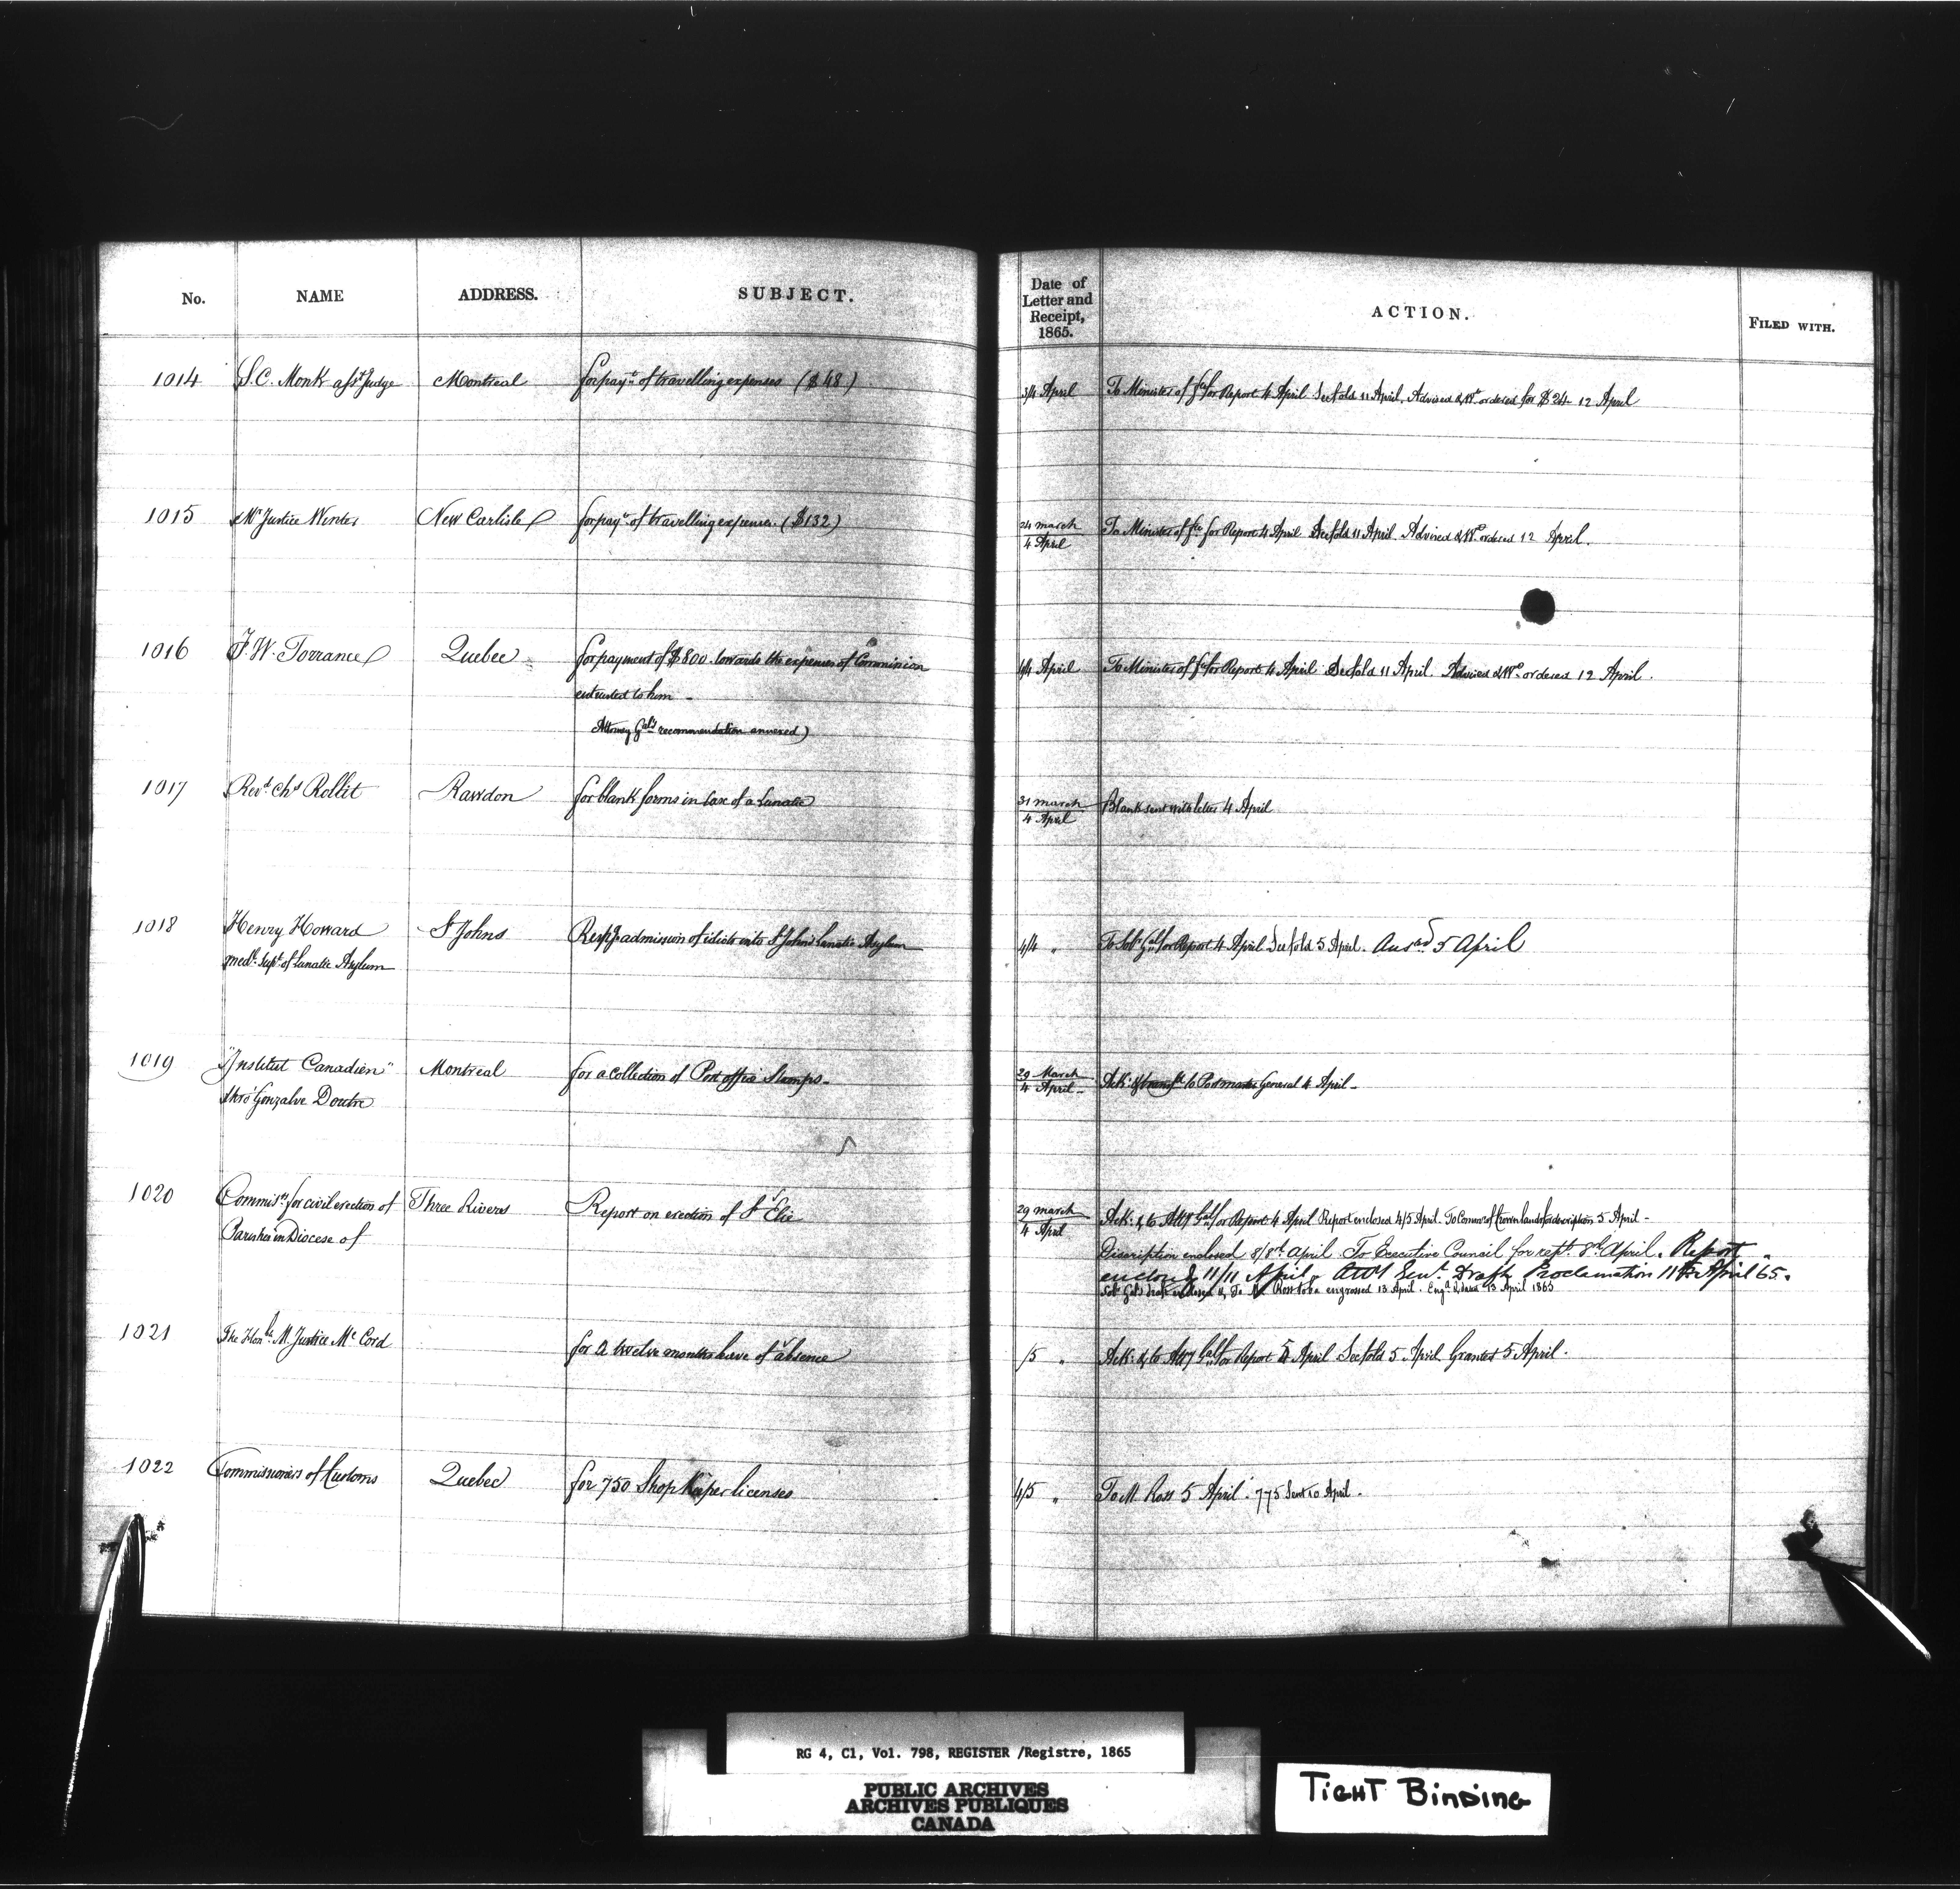 No. NAME ADDRESS. SUBJECT. Date of Letter and Receipt, 1865. ACTION. FILED WITH.
1014 S. C. Monk asst Judge Montreal for payt. of travelling expenses ($48) 3/4 April To Minister of fce for Report 4 April See fold 11 April. Advised & Wt. ordered for $24 12 April
1015 Mr Justice Winter New Carlisle for payt. of travelling expenses. ($132) 24 march
4 April To Minister of fce for Report 4 April See fold 11 April. Advised & Wt. ordered 12 April.
1016 F. W. Torrance Quebec for payment of $800 towards the expenses of Commission 4/4 April To Minister of fce for Report 4 April See fold 11 April. Advised & Wt. ordered 12 April.
entrusted to him -
Attorney Gal's recommendation annexed)
1017 Revd. Chs Rollit Rawdon for blank forms in case of a Lunatic 31 march
4 April Blank sent with letter 4 April
1018 Henry Howard St Johns Respg admission of idiots into St John's Lunatic Asylum 4/4 " To Solr Gal for Report 4 April See fold 5 April. Ansd. 5 April
medl. Supt. of Lunatic Asylum
1019 "Institut Canadien" Montreal for a collection of Post office Stamps - 29 March
4 April - Ack: & transfd to Postmaster General 4 April -
thro' Gonzalve Doutre
1020 Commisrs. for civil erection of Three Rivers Report on erection of St Elie 29 march
4 April Ack: & to Atty Gal for Report 4 April Report enclosed 4/5 April. To Commr of Crown lands for description 5 April -
Parishes in Diocese of
Discription enclosed 8/8th April. To Executive Council for rept. 8th April. Report
enclosed 11/11 April. Atty Genl. Draft Proclamation 11th April 65.
Ross to be engrossed 13 April. 13 April 1865
1021 The Honble. M. Justice Mc Cord for a twelve months leave of absence /5 " Ack: & to Atty Gal for Report 5 April See fold 5 April Granted 5 April.
1022 Commissioners of Customs Quebec for 750 Shop Keeper licenses 4/5 " To M. Ross 5 April. 775 Sent 10 April.
RG 4, C1, Vol. 798, REGISTER /Registre, 1865
PUBLIC ARCHIVES
ARCHIVES PUBLIQUES
CANADA
TIGHT BINDING